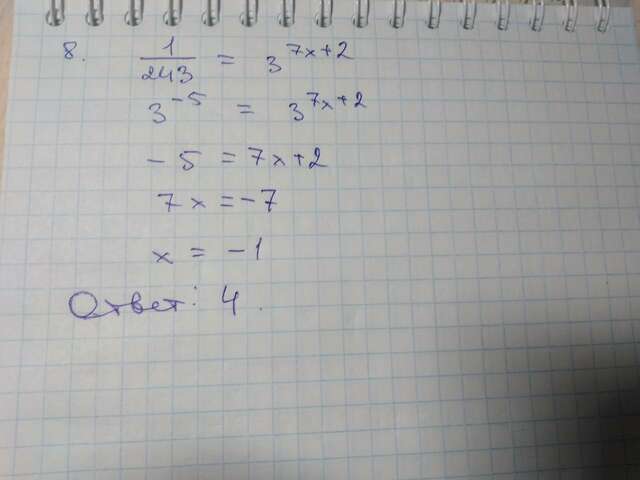 8. 1/243 = 3^(7x+2)
3^(-5) = 3^(7x+2)
-5 = 7x+2
7x = -7
x = -1
Ответ: 4.